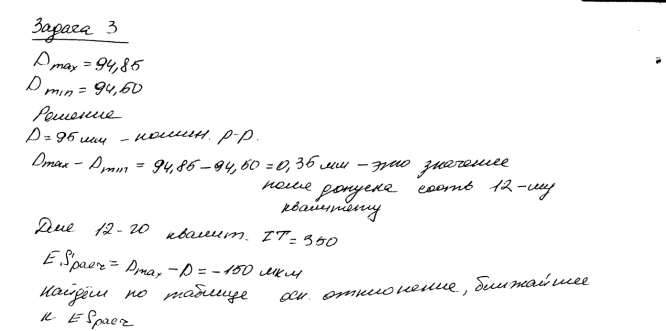 Задача 3
Dmax = 94,85
Dmin = 94,50
Решение
D = 95 мм – номин. р-р.
Dmax – Dmin = 94,85 – 94,50 = 0,35 мм – это значение
поле допуска соотв 12-му
квалитету
Для 12-го квалит. IT = 350
ESрасч = Dmax – D = –150 мкм
Найдём по таблице осн. отклонение, ближайшее
к ESрасч